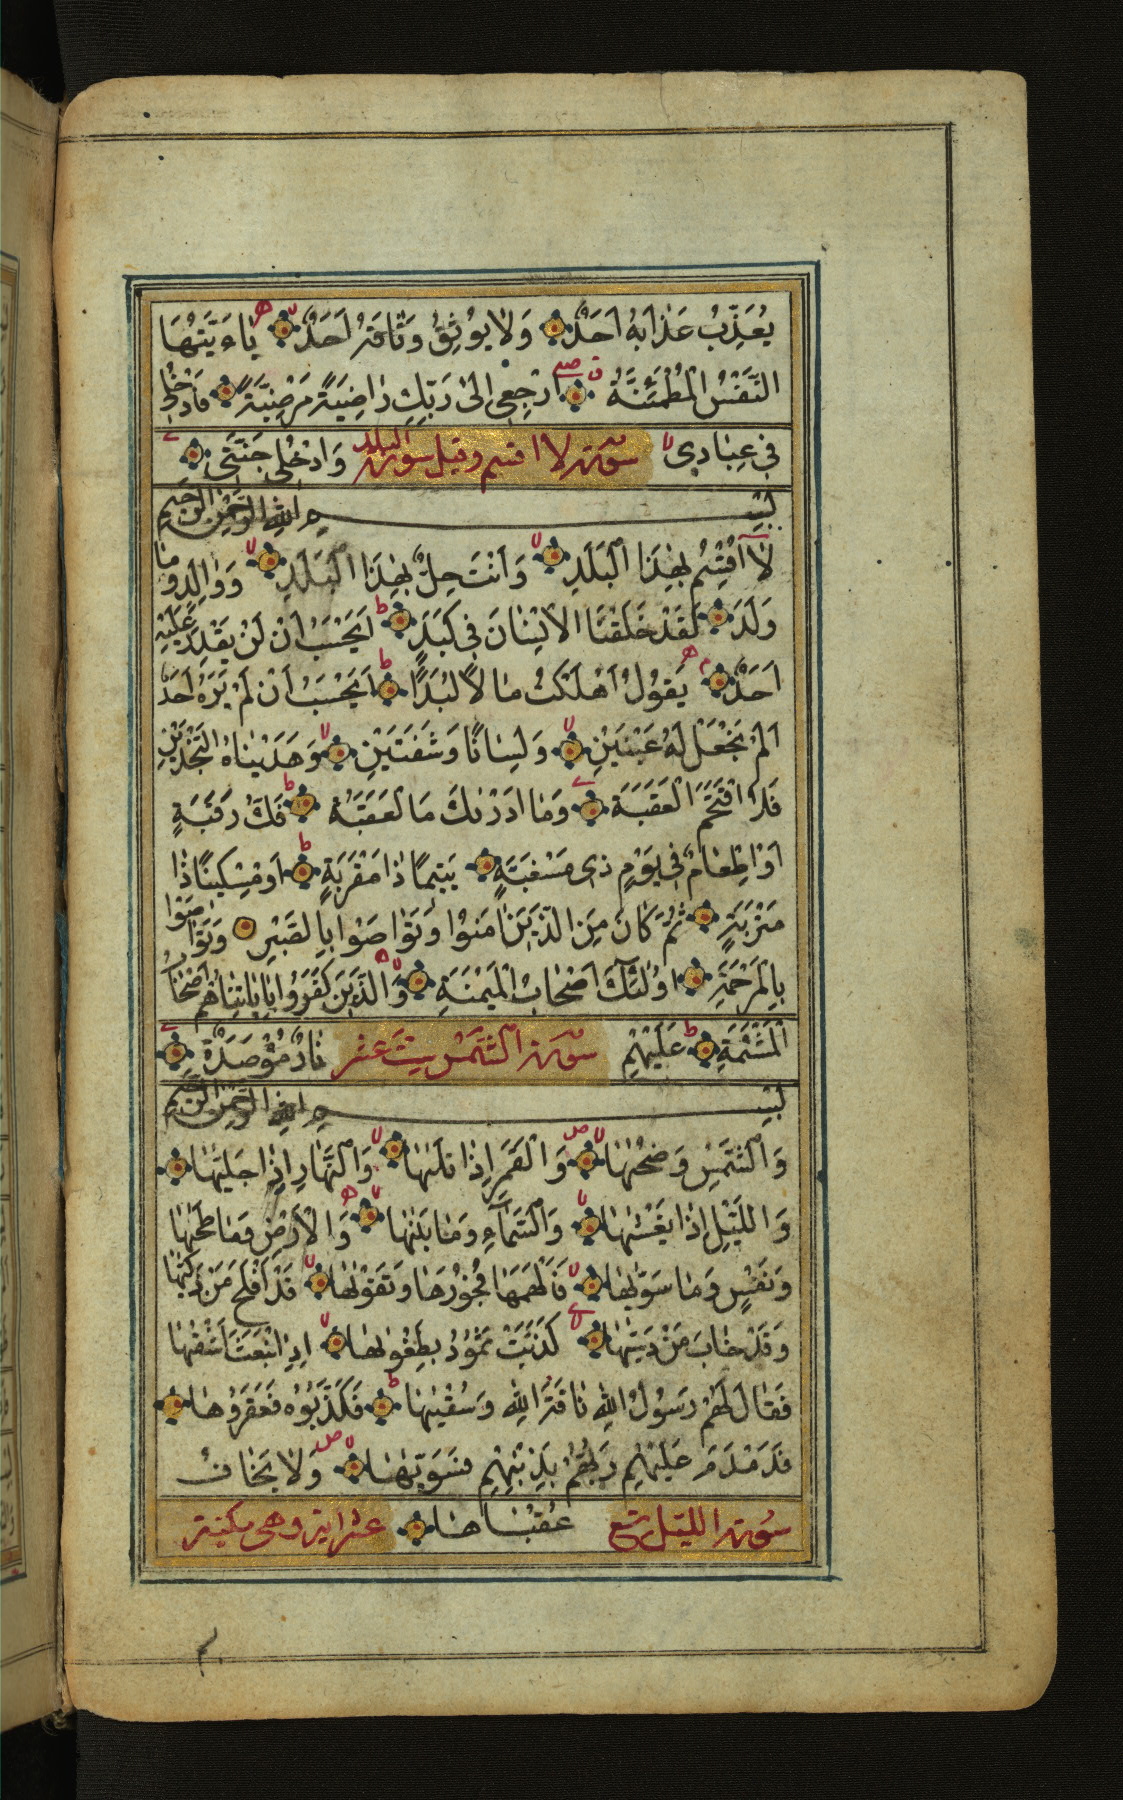 يُعَذِّبُ عَذَابَهُ اَحَدٌ وَلَا يُوثِقُ وَثَاقَهُ اَحَدٌ يَاءَيَّتُهَا
النَّفْسُ الْمُطْمَئِنَّةُ ارْجِعِي اِلَى رَبِّكِ رَاضِيَةً مَرْضِيَّةً فَادْخُلِي
فِي عِبَادِي سورة لا اقسم وقيل سورة البلد وَادْخُلِي جَنَّتِي
بِسْمِ اللهِ الرَّحْمٰنِ الرَّحِيمِ
لَا اُقْسِمُ بِهٰذَا الْبَلَدِ وَاَنْتَ حِلٌّ بِهٰذَا الْبَلَدِ وَوَالِدٍ وَمَا
وَلَدَ لَقَدْ خَلَقْنَا الْاِنْسَانَ فِي كَبَدٍ اَيَحْسَبُ اَنْ لَنْ يَقْدِرَ عَلَيْهِ
اَحَدٌ يَقُولُ اَهْلَكْتُ مَالًا لُبَدًا اَيَحْسَبُ اَنْ لَمْ يَرَهُ اَحَدٌ
اَلَمْ نَجْعَلْ لَهُ عَيْنَيْنِ وَلِسَانًا وَشَفَتَيْنِ وَهَدَيْنَاهُ النَّجْدَيْنِ
فَلَا اقْتَحَمَ الْعَقَبَةَ وَمَا اَدْرٰىكَ مَا لْعَقَبَةُ فَكُّ رَقَبَةٍ
اَوْ اِطْعَامٌ فِي يَوْمٍ ذِي مَسْغَبَةٍ يَتِيمًا ذَا مَقْرَبَةٍ اَوْ مِسْكِينًا ذَا
مَتْرَبَةٍ ثُمَّ كَانَ مِنَ الَّذِينَ اٰمَنُوا وَتَوَاصَوْا بِالصَّبْرِ وَتَوَاصَوْا
بِالْمَرْحَمَةِ اُولٰئِكَ اَصْحَابُ الْمَيْمَنَةِ وَالَّذِينَ كَفَرُوا بِاٰيَاتِنَا هُمْ اَصْحَابُ
الْمَشْئَمَةِ عَلَيْهِمْ سورة الشمس ست عشر نَارٌ مُؤْصَدَةٌ
بِسْمِ اللهِ الرَّحْمٰنِ الرَّحِيمِ
وَالشَّمْسِ وَضُحٰهَا وَالْقَمَرِ اِذَا تَلٰىهَا وَالنَّهَارِ اِذَا جَلّٰيهَا
وَاللَّيْلِ اِذَا يَغْشٰىهَا وَالسَّمَاءِ وَمَا بَنٰهَا وَالْاَرْضِ وَمَا طَحٰهَا
وَنَفْسٍ وَمَا سَوّٰيهَا فَاَلْهَمَهَا فُجُورَهَا وَتَقْوٰهَا قَدْ اَفْلَحَ مَنْ زَكّٰيهَا
وَقَدْ خَابَ مَنْ دَسّٰيهَا كَذَّبَتْ ثَمُودُ بِطَغْوٰهَا اِذِ انْبَعَثَ اَشْقٰهَا
فَقَالَ لَهُمْ رَسُولُ اللهِ نَاقَةَ اللهِ وَسُقْيٰهَا فَكَذَّبُوهُ فَعَقَرُوهَا
فَدَمْدَمَ عَلَيْهِمْ رَبُّهُمْ بِذَنْبِهِمْ فَسَوّٰيهَا وَلَا يَخَافُ
سورة الليل تسع عُقْبَاهَا عشر اية وهي مكية